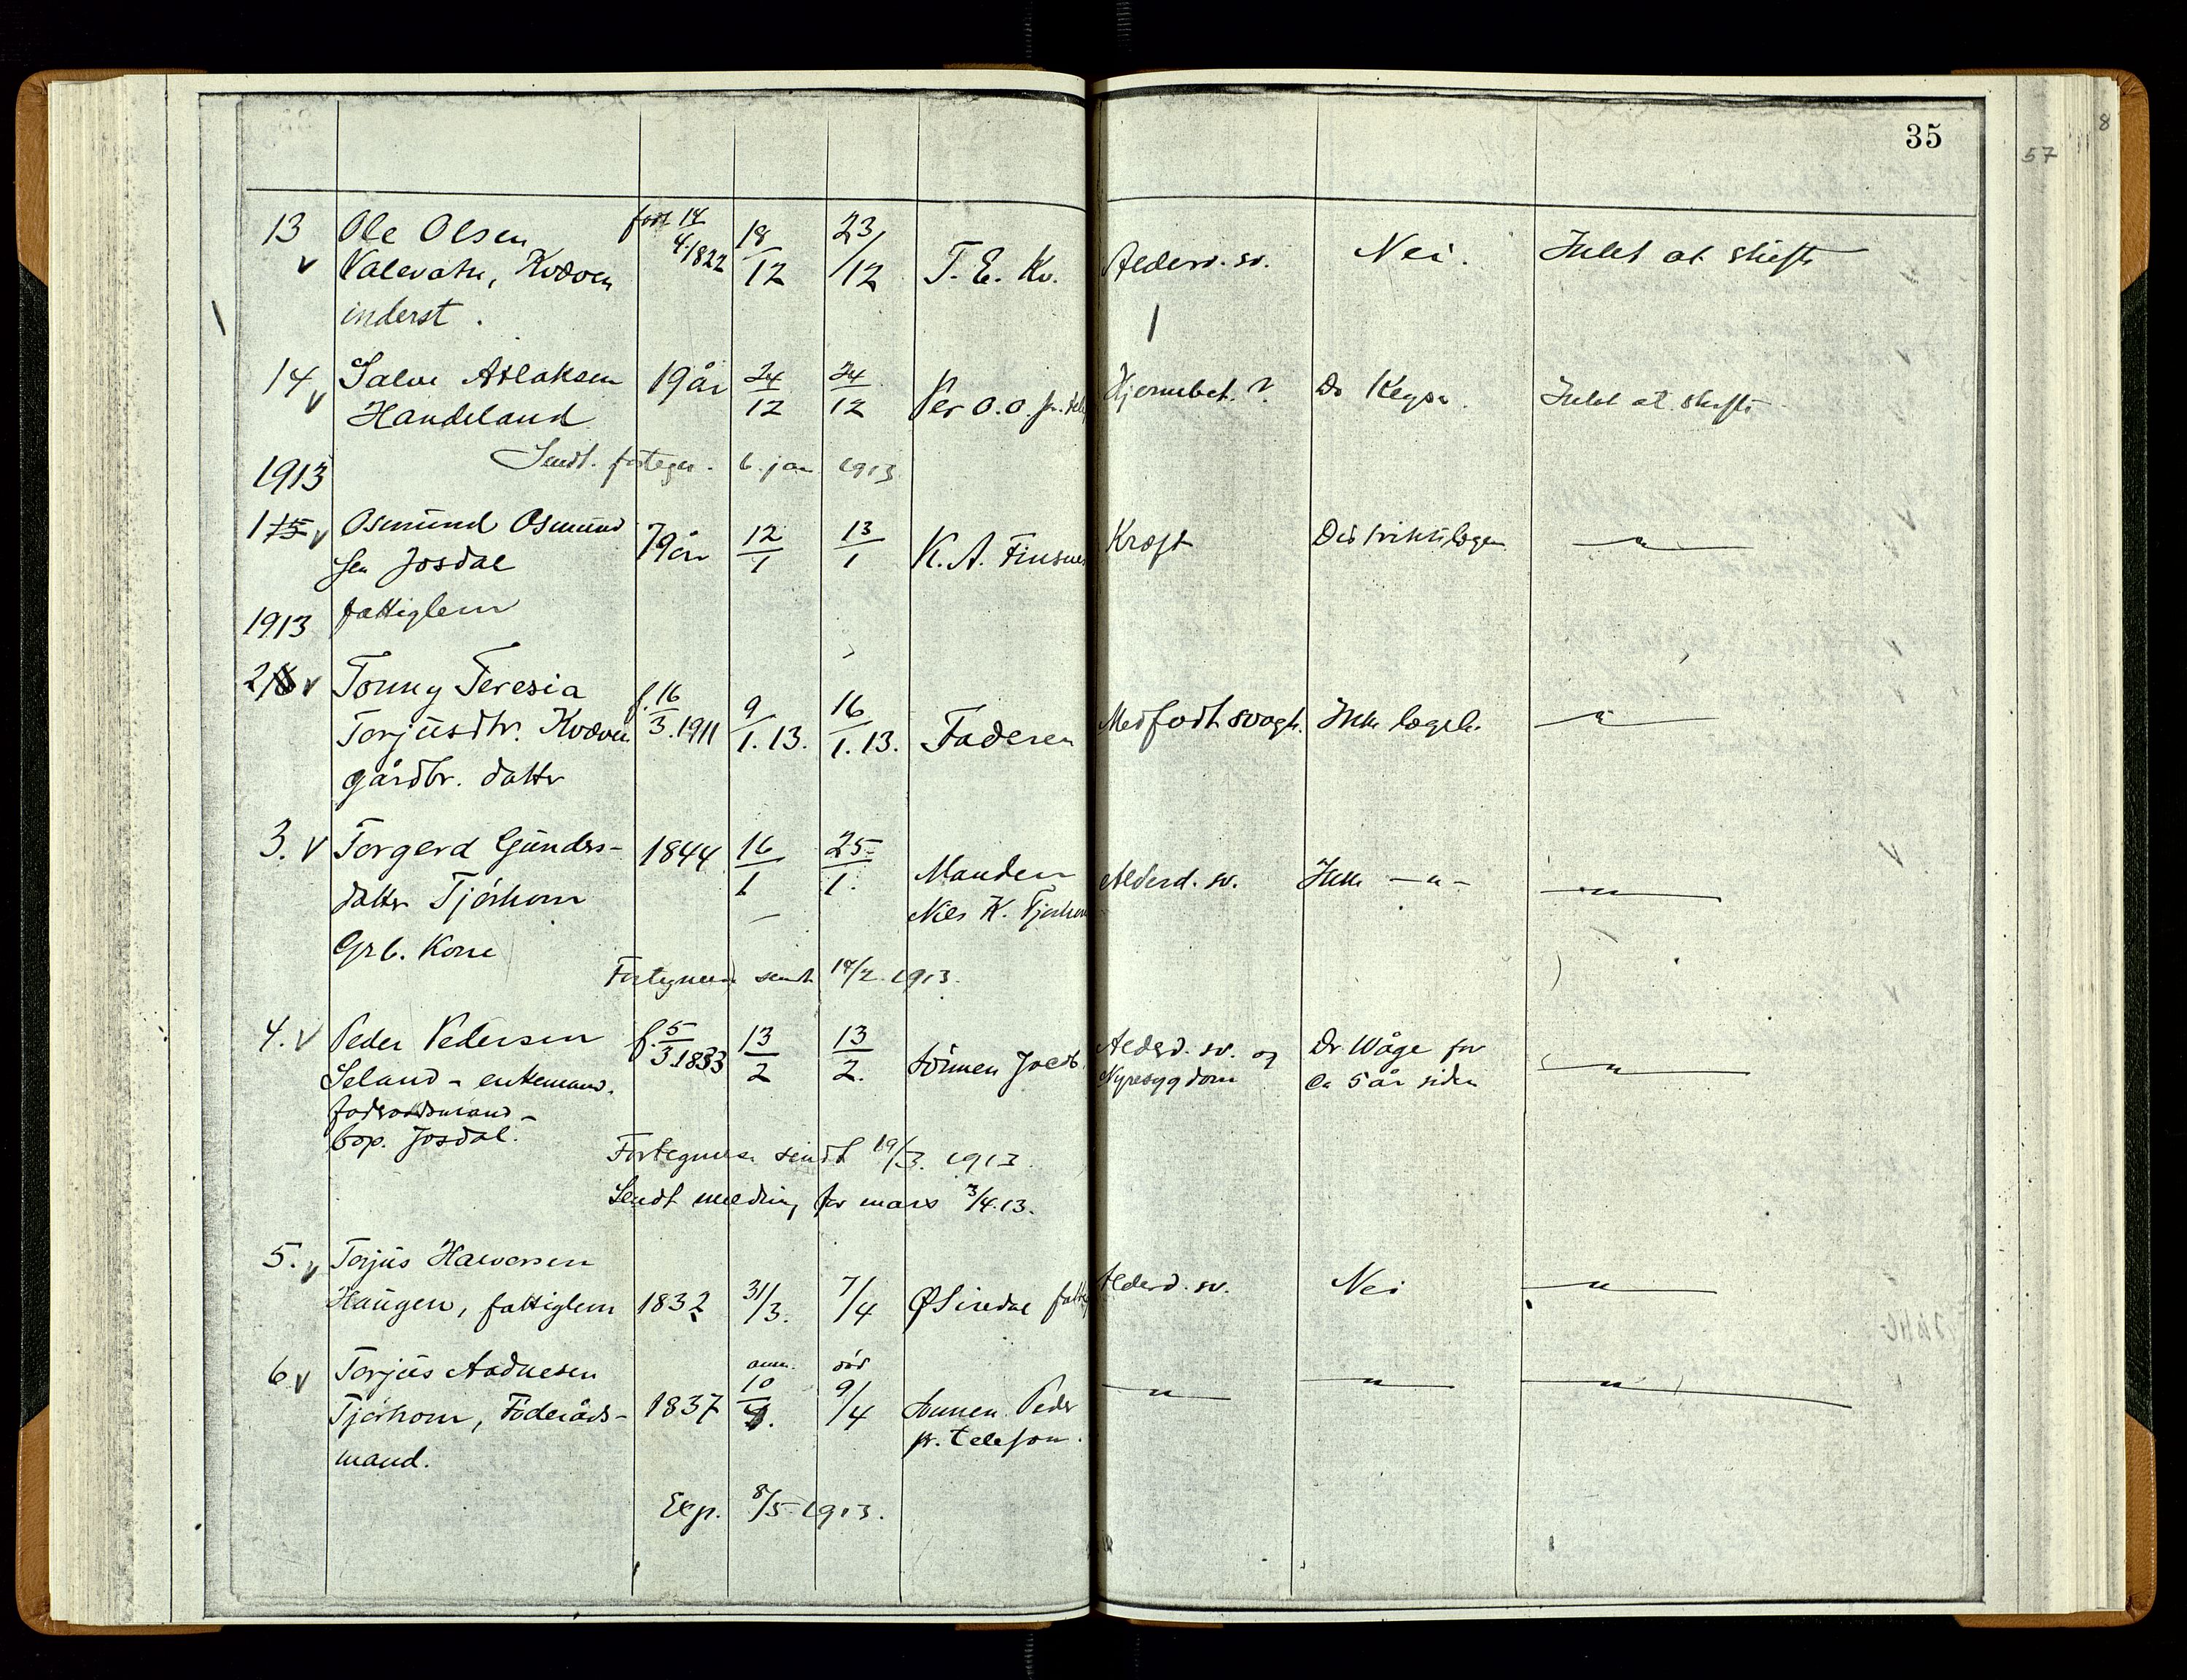 35
57
8
13 Ole Olsen født 14/4 1822 18/12 23/12 T. E. Kv. Alderd. sv. Nei. Intet at skifte
Valevatn, Kvæven
inderst.
14 Salve Aslaksen 19 år 24/12 24/12 Per O. O. pr. tele Hjernebet.? Dr Keyser Intet at skifte
Handeland
Sendt. forteg. 6. jan 1913
1913
1 15 Osmund Osmund 79 år 12/1 13/1 K. A. Finsnes Kræft Distriktslægen —"—
sen Josdal
fattiglem
1913
2 Tonny Teresia f. 16/3 1911 9/1. 13. 16/1. 13. Faderen Medfødt svagh. Ikke lægeb. —"—
Torjusdtr. Kvæven
gårdbr. datter
3. Torgerd Gunders- 1844 16/1 25/1. Manden Alderd. sv. Ikke —"— —"—
datter Tjørhom Nils K. Tjørhom
Grb. Kone
Fortegnelse sendt 14/2. 1913.
4. Peder Pedersen f. 5/3 1833 13/2 13/2. Sønnen Jacob Alderd. sv. og Dr. Wåge for —"—
Seland - enkemand. Nyresygdom Ca 5 år siden
føderådsmand -
bop. Josdal.
Fortegnelse sendt 19/3. 1913.
Sendt melding for mars 3/4. 13.
5. Torjus Halvorsen
Haugen, fattiglem 1832 31/3. 7/4 Ø Sinedal Alderd. sv. Nei —"—
6 Torjus Aadnesen anm. død
Tjørhom, Føderåds- 1837 10/4. 9/4 Sønnen Peder —"— —"— —"—
mand. pr. telefon.
Exp. 8/5 1913.